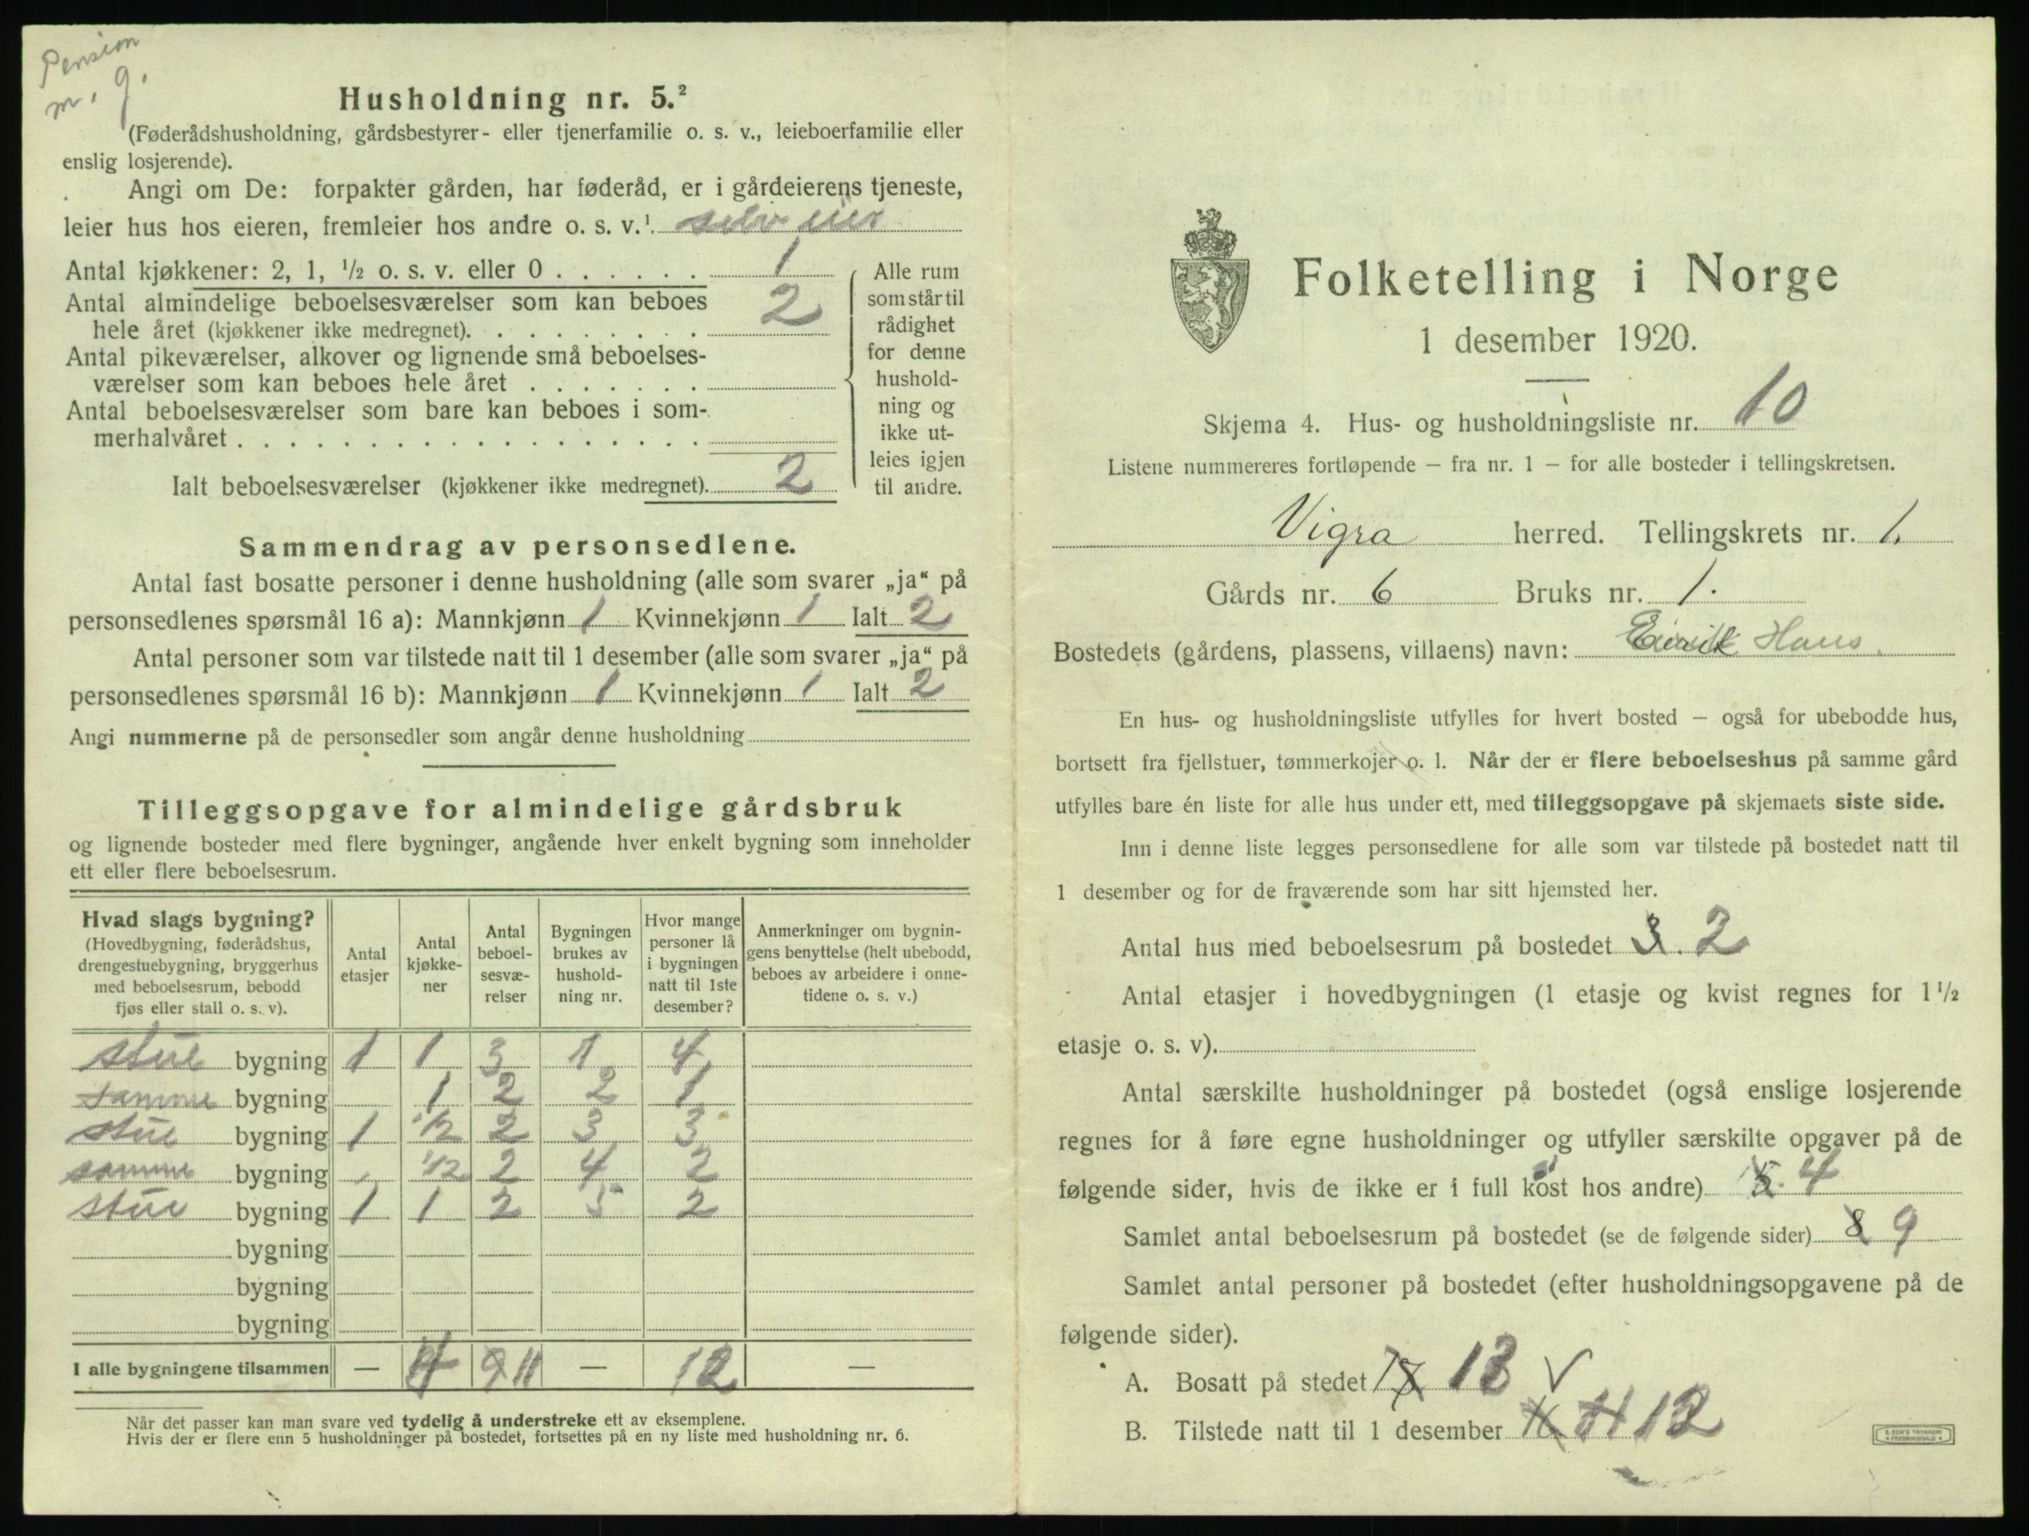 Pension
m. g.
Husholdning nr. 5.²
(Føderådshusholdning, gårdsbestyrer- eller tjenerfamilie o. s. v., leieboerfamilie eller
enslig losjerende).
Angi om De: forpakter gården, har føderåd, er i gårdeierens tjeneste,
leier hus hos eieren, fremleier hos andre o. s. v.¹ selv eier
Antal kjøkkener: 2, 1, ½ o. s. v. eller 0 . . . . . . 1
Antal almindelige beboelsesværelser som kan beboes
hele året (kjøkkener ikke medregnet). . . . . . . . . 2
Antal pikeværelser, alkover og lignende små beboelses-
værelser som kan beboes hele året . . . . . . .
Antal beboelsesværelser som bare kan beboes i som-
merhalvåret . . . . . . . . . . . . . . . . . .
Ialt beboelsesværelser (kjøkkener ikke medregnet). 2
Alle rum
som står til
rådighet
for denne
hushold-
ning og
ikke ut-
leies igjen
til andre.
Sammendrag av personsedlene.
Antal fast bosatte personer i denne husholdning (alle som svarer „ja“ på
personsedlenes spørsmål 16 a): Mannkjønn 1 Kvinnekjønn 1 Ialt 2
Antal personer som var tilstede natt til 1 desember (alle som svarer „ja“ på
personsedlenes spørsmål 16 b): Mannkjønn 1 Kvinnekjønn 1 Ialt 2
Angi nummerne på de personsedler som angår denne husholdning
Tilleggsopgave for almindelige gårdsbruk
og lignende bosteder med flere bygninger, angående hver enkelt bygning som inneholder
ett eller flere beboelsesrum.
Hvad slags bygning?
(Hovedbygning, føderådshus,
drengestuebygning, bryggerhus
med beboelsesrum, bebodd
fjøs eller stall o. s. v).
Antal
etasjer
Antal
kjøkke-
ner
Antal
beboel-
sesvæ-
relser
Bygningen
brukes av
hushold-
ning nr.
Hvor mange
personer lå
i bygningen
natt til 1ste
desember?
Anmerkninger om bygnin-
gens benyttelse (helt ubebodd,
beboes av arbeidere i onne-
tidene o. s. v.)
stue bygning 1 1 3 1 4
samme bygning 1 2 2 1
stue bygning 1 1/2 2 3 3
samme bygning , 1/2 2 4 2
stue bygning 1 1 2 5 2
bygning
bygning
bygning
I alle bygningene tilsammen — 4 9 11 — 12 —
Når det passer kan man svare ved tydelig å understreke ett av eksemplene.
Hvis der er flere enn 5 husholdninger på bostedet, fortsettes på en ny liste med husholdning nr. 6.
Folketelling i Norge
1 desember 1920.
Skjema 4. Hus- og husholdningsliste nr. 10
Listene nummereres fortløpende – fra nr. 1 – for alle bosteder i tellingskretsen.
Vigra herred. Tellingskrets nr. 1.
Gårds nr. 6 Bruks nr. 1.
Bostedets (gårdens, plassens, villaens) navn: Eirik Haus.
En hus- og husholdningsliste utfylles for hvert bosted – også for ubebodde hus,
bortsett fra fjellstuer, tømmerkojer o. l. Når der er flere beboelseshus på samme gård
utfylles bare én liste for alle hus under ett, med tilleggsopgave på skjemaets siste side.
Inn i denne liste legges personsedlene for alle som var tilstede på bostedet natt til
1 desember og for de fraværende som har sitt hjemsted her.
Antal hus med beboelsesrum på bostedet 3. 2
Antal etasjer i hovedbygningen (1 etasje og kvist regnes for 1½
etasje o. s. v).
Antal særskilte husholdninger på bostedet (også enslige losjerende
regnes for å føre egne husholdninger og utfyller særskilte opgaver på de
følgende sider, hvis de ikke er i full kost hos andre) 5. 4
Samlet antal beboelsesrum på bostedet (se de følgende sider) 8 9
Samlet antal personer på bostedet (efter husholdningsopgavene på de
følgende sider).
A. Bosatt på stedet 13 V
B. Tilstede natt til 1 desember 11 12
E. SEM'S TRYKKERI
FREDRIKSHALD